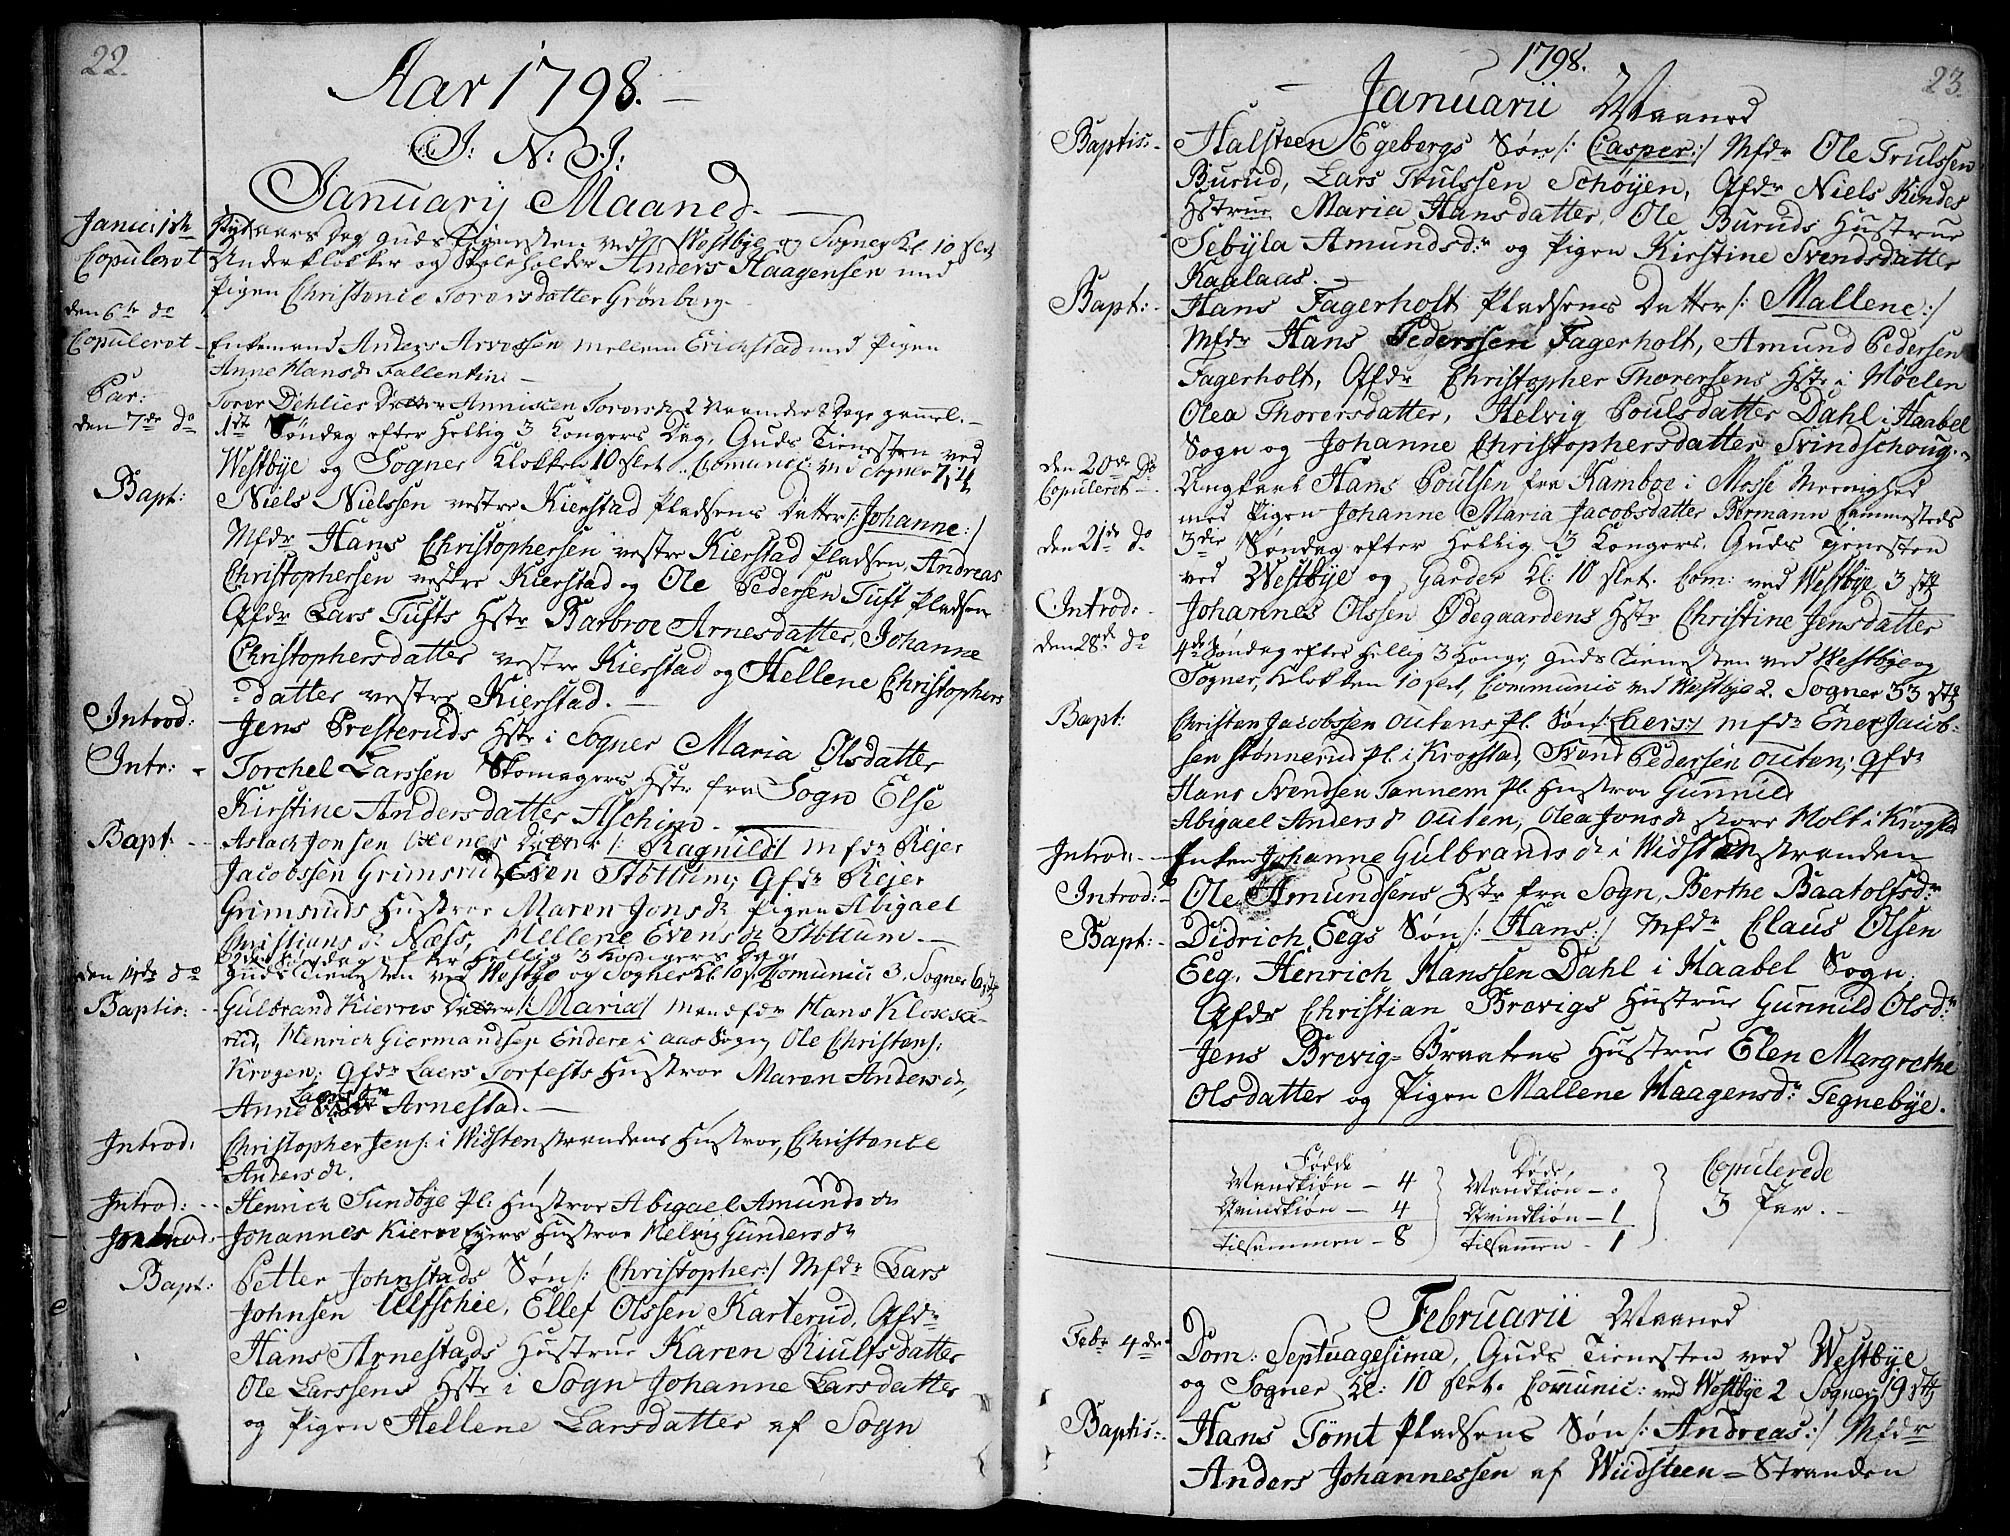 22.
Aar 1798. —
J: N: J:
Januarij Maaned. —
Janu: 1ste Nytaars Dag Guds Tienesten ved Westbye og Sogner Kl. 10 slet
Copuleret Underklokker og Skoleholder Anders Haagensen med
Pigen Christence Torersdatter Grønberg. —
den 6te do
Copuleret — Enkemand Anders Arvesen mellem Erichstad med Pigen
Anne Hansdr Fallentin —
Par: Torer Dehlies Datter Annicken Torersdr 2 Maaneder 2 Dage gammel. —
den 7de do 1ste Søndag efter Hellig 3 Kongers Dag, Guds Tienesten ved
Westbye og Sogner Klokken 10 slet. Comunic: ved Sogner 7
Bapt: Niels Nielssen vestre Kierstad Pladsens Datter /: Johanne :/
Mfdr Hans Christophersen vestre Kierstad Pladsen, Andreas
Christophersen vestre Kierstad og Ole Pedersen Tuft Pladsen
Qfdr Lars Tufts Hstr Barbroe Arnesdatter, Johanne
Christophersdatter vestre Kierstad og Hellene Christophers
=datter vestre Kierstad. —
Introd: Jens Presteruds Hstr i Sogner Maria Olsdatter
Intr: Torchel Larssen Skomagers Hstr fra Sogn Else
Kirstine Andersdatter Aschim. —
Bapt: Aslach Jonsen Datter /: Ragnild :/ mfdr Rejer
Jacobssen Grimsrud, Even Støttum; Qfdr Rejer
Grimsruds Hustroe Maren Jonsdr Pigen Abigael
Christiansdr Næss, Hellene Evensdr Støttum. —
2den Søndag efter Hellig 3 Kongers Dag
den 14de do Guds Tienesten ved Westbye og Sogner Kl. 10 sl. Comunic 3. Sogner 6
Baptis: Gulbrand Kierres Datter /: Maria :/ Mandfdr Hans Kloses=
rud, Henrich Giermandsen Endere i aas Sogn Ole Christens:
Krogen; Qfdr Laers Torfests Hustroe Maren Andersdr,
Anne Larsdr Arnestad. —
Introd: Christopher Jens: i Widstenstrandens Hustroe, Christence
Andersdr.
Introd: Henrich Sundbye Pl: Hustroe Abigael Amundsdr
Introd: Johannes Kierre Eyers Hustroe Helvig Gundersdr
Bapt: Petter Johnstads Søn /: Christopher :/ Mfdr Lars
Johnsen Ulfschie, Ellef Olssen Karterud, Qfdr
Hans Arnestads Hustrue Karen Kiulfsdatter
Ole Larssens Hstr i Sogn Johanne Larsdatter
og Pigen Hellene Larsdatter af Sogn
1798.
23.
Januarii Maaned
Baptis: Halsteen Egebergs Søn /: Casper :/ Mfdr Ole Trulssen
Burud, Lars Trulssen Schøyen, Qfdr Niels Rindes
Hstrue Maria Hansdatter, Ole Buruds Hustrue
Sebyla Amundsdr og Pigen Kirstine Svendsdatter
Raalaas. —
Bapt: Hans Fagerholt Pladsens Datter /: Mallene :/
Mfdr Hans Pederssen Fagerholt, Amund Pedersen
Fagerholt, Qfdr Christopher Thorersens Hstr i Moelen
Olea Thorersdatter, Helvig Poulsdatter Dahl i Haabel
Sogn og Johanne Christophersdatter Svindschoug. —
den 20de do
Copuleret — Ungkarl Hans Poulsen fra Kamboe i Mosse Menighed
med Pigen Johanne Maria Jacobsdatter Bermann sammesteds
den 21de do 3die Søndag efter Hellig 3 Konger. Guds Tienesten
ved Westbye og Garder Kl: 10 slet. Com: ved Westbye 3 stk
Introd: Johannes Olssen Ødegaardens Hstr Christine Jensdatter
den 28de do 4de Søndag efter Hellig 3 Konge; Guds Tienesten ved Westbye og
Sogner, Klokken 10 slet, Communic ved Westbye 2. Sogner 33 stk
Bapt: Christen Jacobssen Outens Pl. Søn /: Laers :/ mfdr Ener Jacob-
sen Stønnerud Pl. i Krogstad, Svend Pedersen Outen; Qfdr
Hans Svendsen Tannem Pl. Hustroe Gunnild
Abigael Andersdr Outen, Olea Jonsdr store Holt i Krogstad
Introd: — Enken Johanne Gulbrandsdr i Widstenstranden
Introd: — Ole Amundsens Hstr fra Sogn, Berthe Baatolfsdr
Bapt: Didrich Eegs Søn /: Hans :/ Mfdr Claus Olsen
Eeg, Henrich Hanssen Dahl i Haabel Sogn,
Qfdr Christian Brevigs Hustrue Gunnild Olsdr
Jens Brevig=Braatens Hustrue Elen Margrethe
Olsdatter og Pigen Mallene Haagensdr Tegnebye.
Fødde Døde, Copulerede
Mandkiøn — 4 Mandkiøn — 0 3 Par. —
Qvindkiøn — 4 Qvindkiøn — 1
Tilsammen — 8 Tilsamen — 1
Februarii Maaned
Febr 4de Dom: Septuagesima, Guds Tienesten ved Westbye
og Sogner Kl: 10 slet. Comunic: ved Westbye 2 Sogner 19 stk
Baptis: Hans Tømt Pladsens Søn /: Andreas :/ Mfdr
Anders Johannessen af Wiidsteen=Stranden